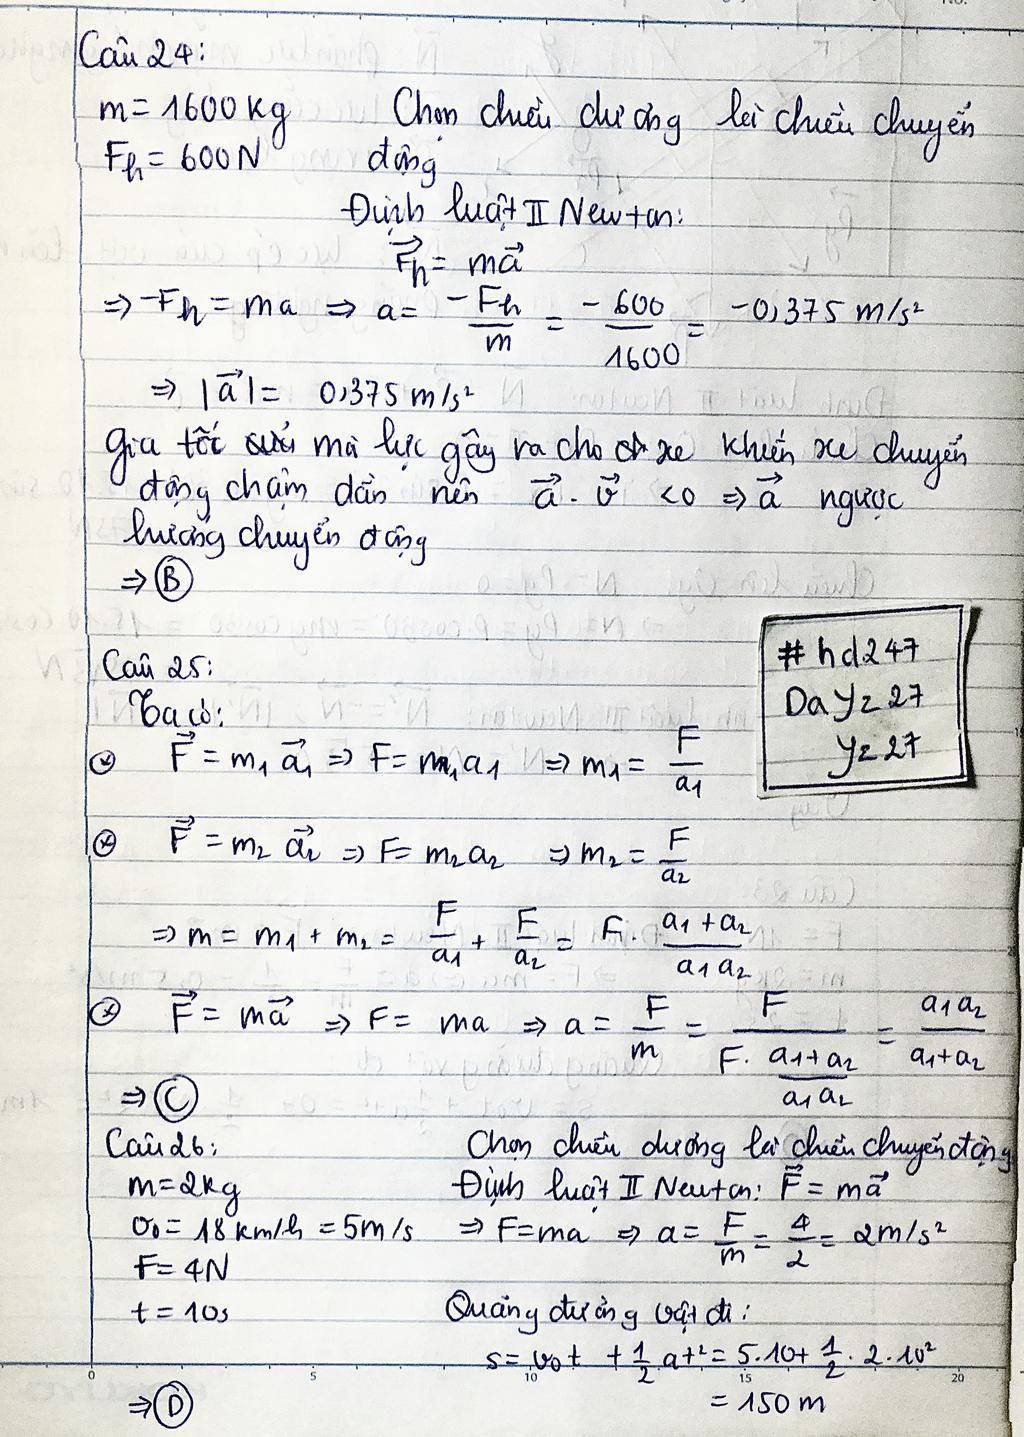 Câu 24:
m = 1600 kg Chọn chiều dương là chiều chuyển
Fh = 600 N động
Định luật II Newton:
F⃗h = ma⃗
⇒ -Fh = ma ⇒ a = -Fh/m = -600/1600 = -0,375 m/s²
⇒ |a⃗| = 0,375 m/s²
Gia tốc mà lực gây ra cho xe khiến xe chuyển
động chậm dần nên a⃗ . v⃗ <0 ⇒ a⃗ ngược
hướng chuyển động
⇒ B
Câu 25:
Ta có:
F⃗ = m₁ a⃗₁ ⇒ F = m₁a₁ ⇒ m₁ = F/a₁
F⃗ = m₂ a⃗₂ ⇒ F = m₂a₂ ⇒ m₂ = F/a₂
⇒ m = m₁ + m₂ = F/a₁ + F/a₂ = F. (a₁ + a₂)/(a₁ a₂)
F⃗ = ma⃗ ⇒ F = ma ⇒ a = F/m = F/(F. (a₁+a₂)/(a₁ a₂)) = (a₁ a₂)/(a₁+a₂)
⇒ C
#hd247
DaYz27
Yz27
Câu 26: Chọn chiều dương là chiều chuyển động
m = 2kg Định luật II Newton: F⃗ = ma⃗
v₀ = 18 km/h = 5m/s ⇒ F = ma ⇒ a = F/m = 4/2 = 2m/s²
F = 4N
t = 10s Quãng đường vật đi:
s = v₀t + 1/2 at² = 5.10 + 1/2 . 2 . 10²
⇒ D = 150 m
0 5 10 15 20